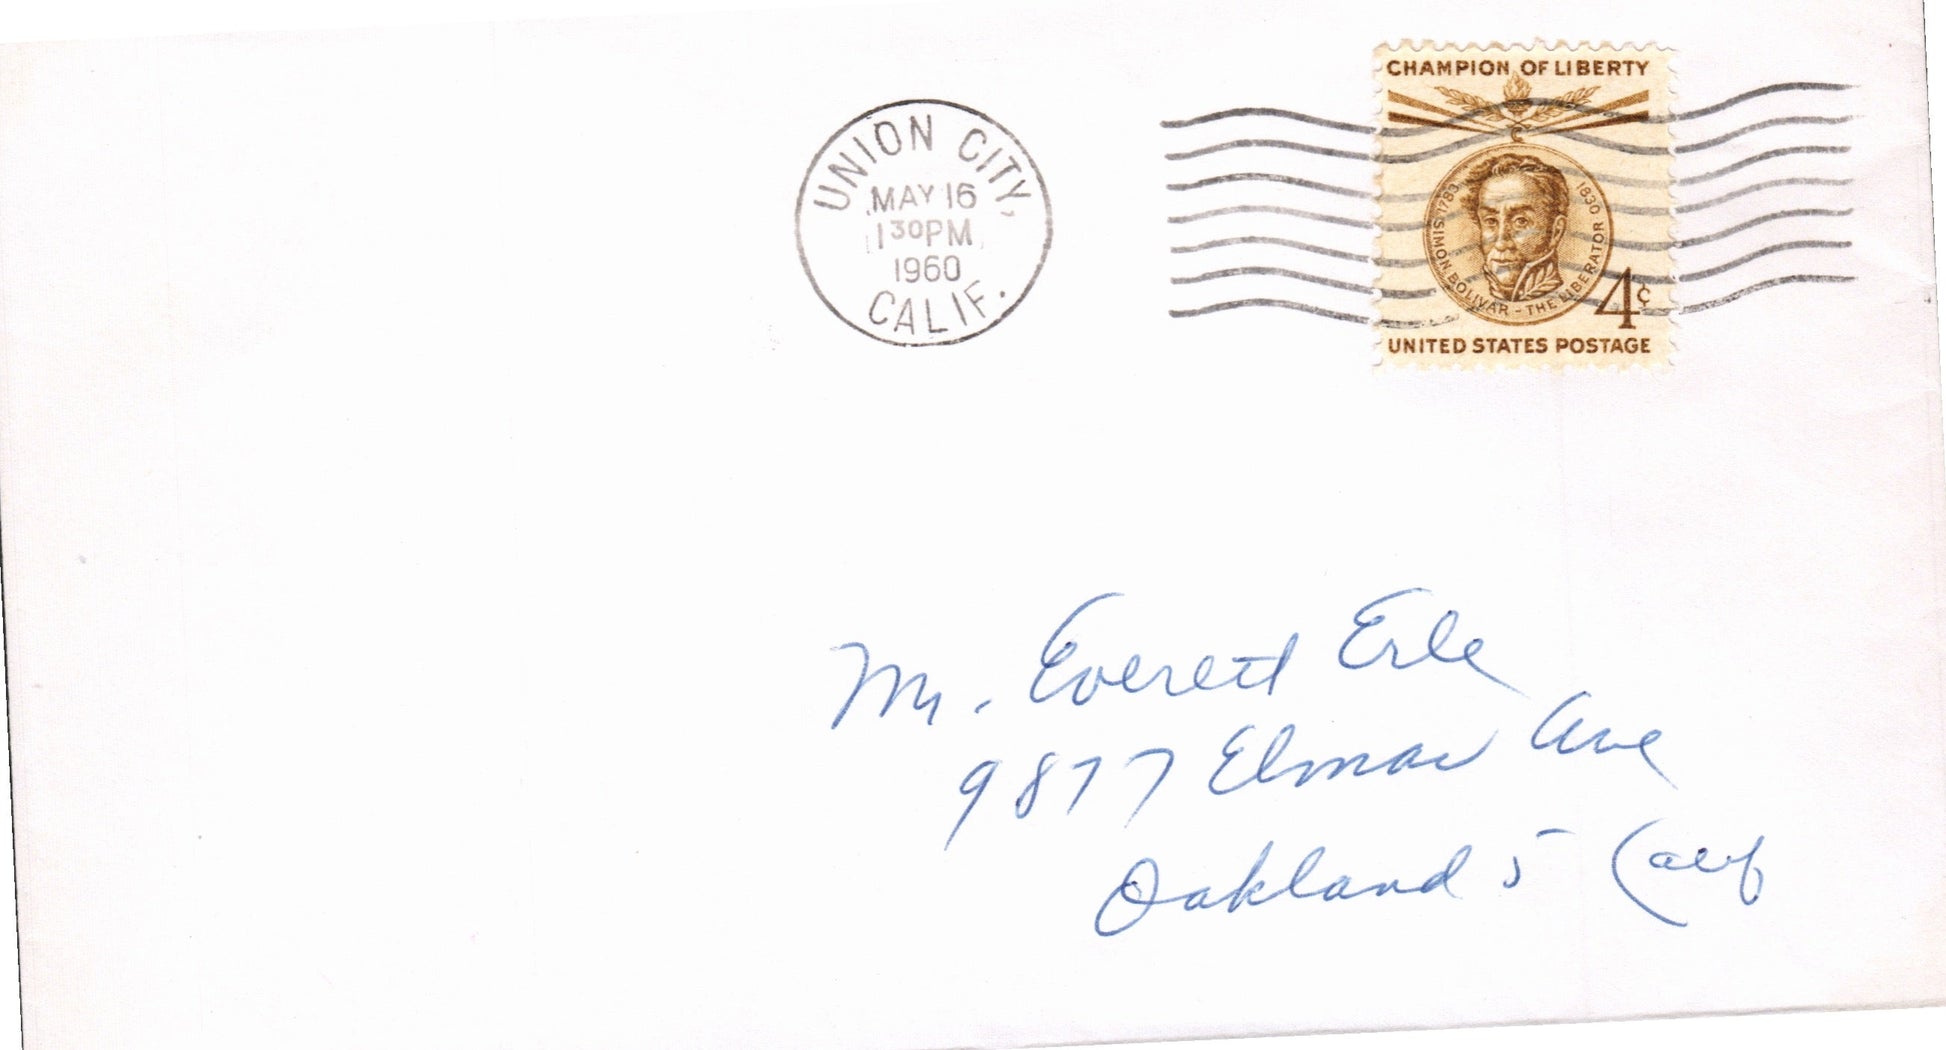 UNION CITY,
MAY 16
1 30 PM
1960
CALIF.
CHAMPION OF LIBERTY
SIMÓN BOLIVAR - THE LIBERATOR
1783
1830
4¢
UNITED STATES POSTAGE
Mr. Everett Erle
9877 Elmar Ave
Oakland 5 Calif